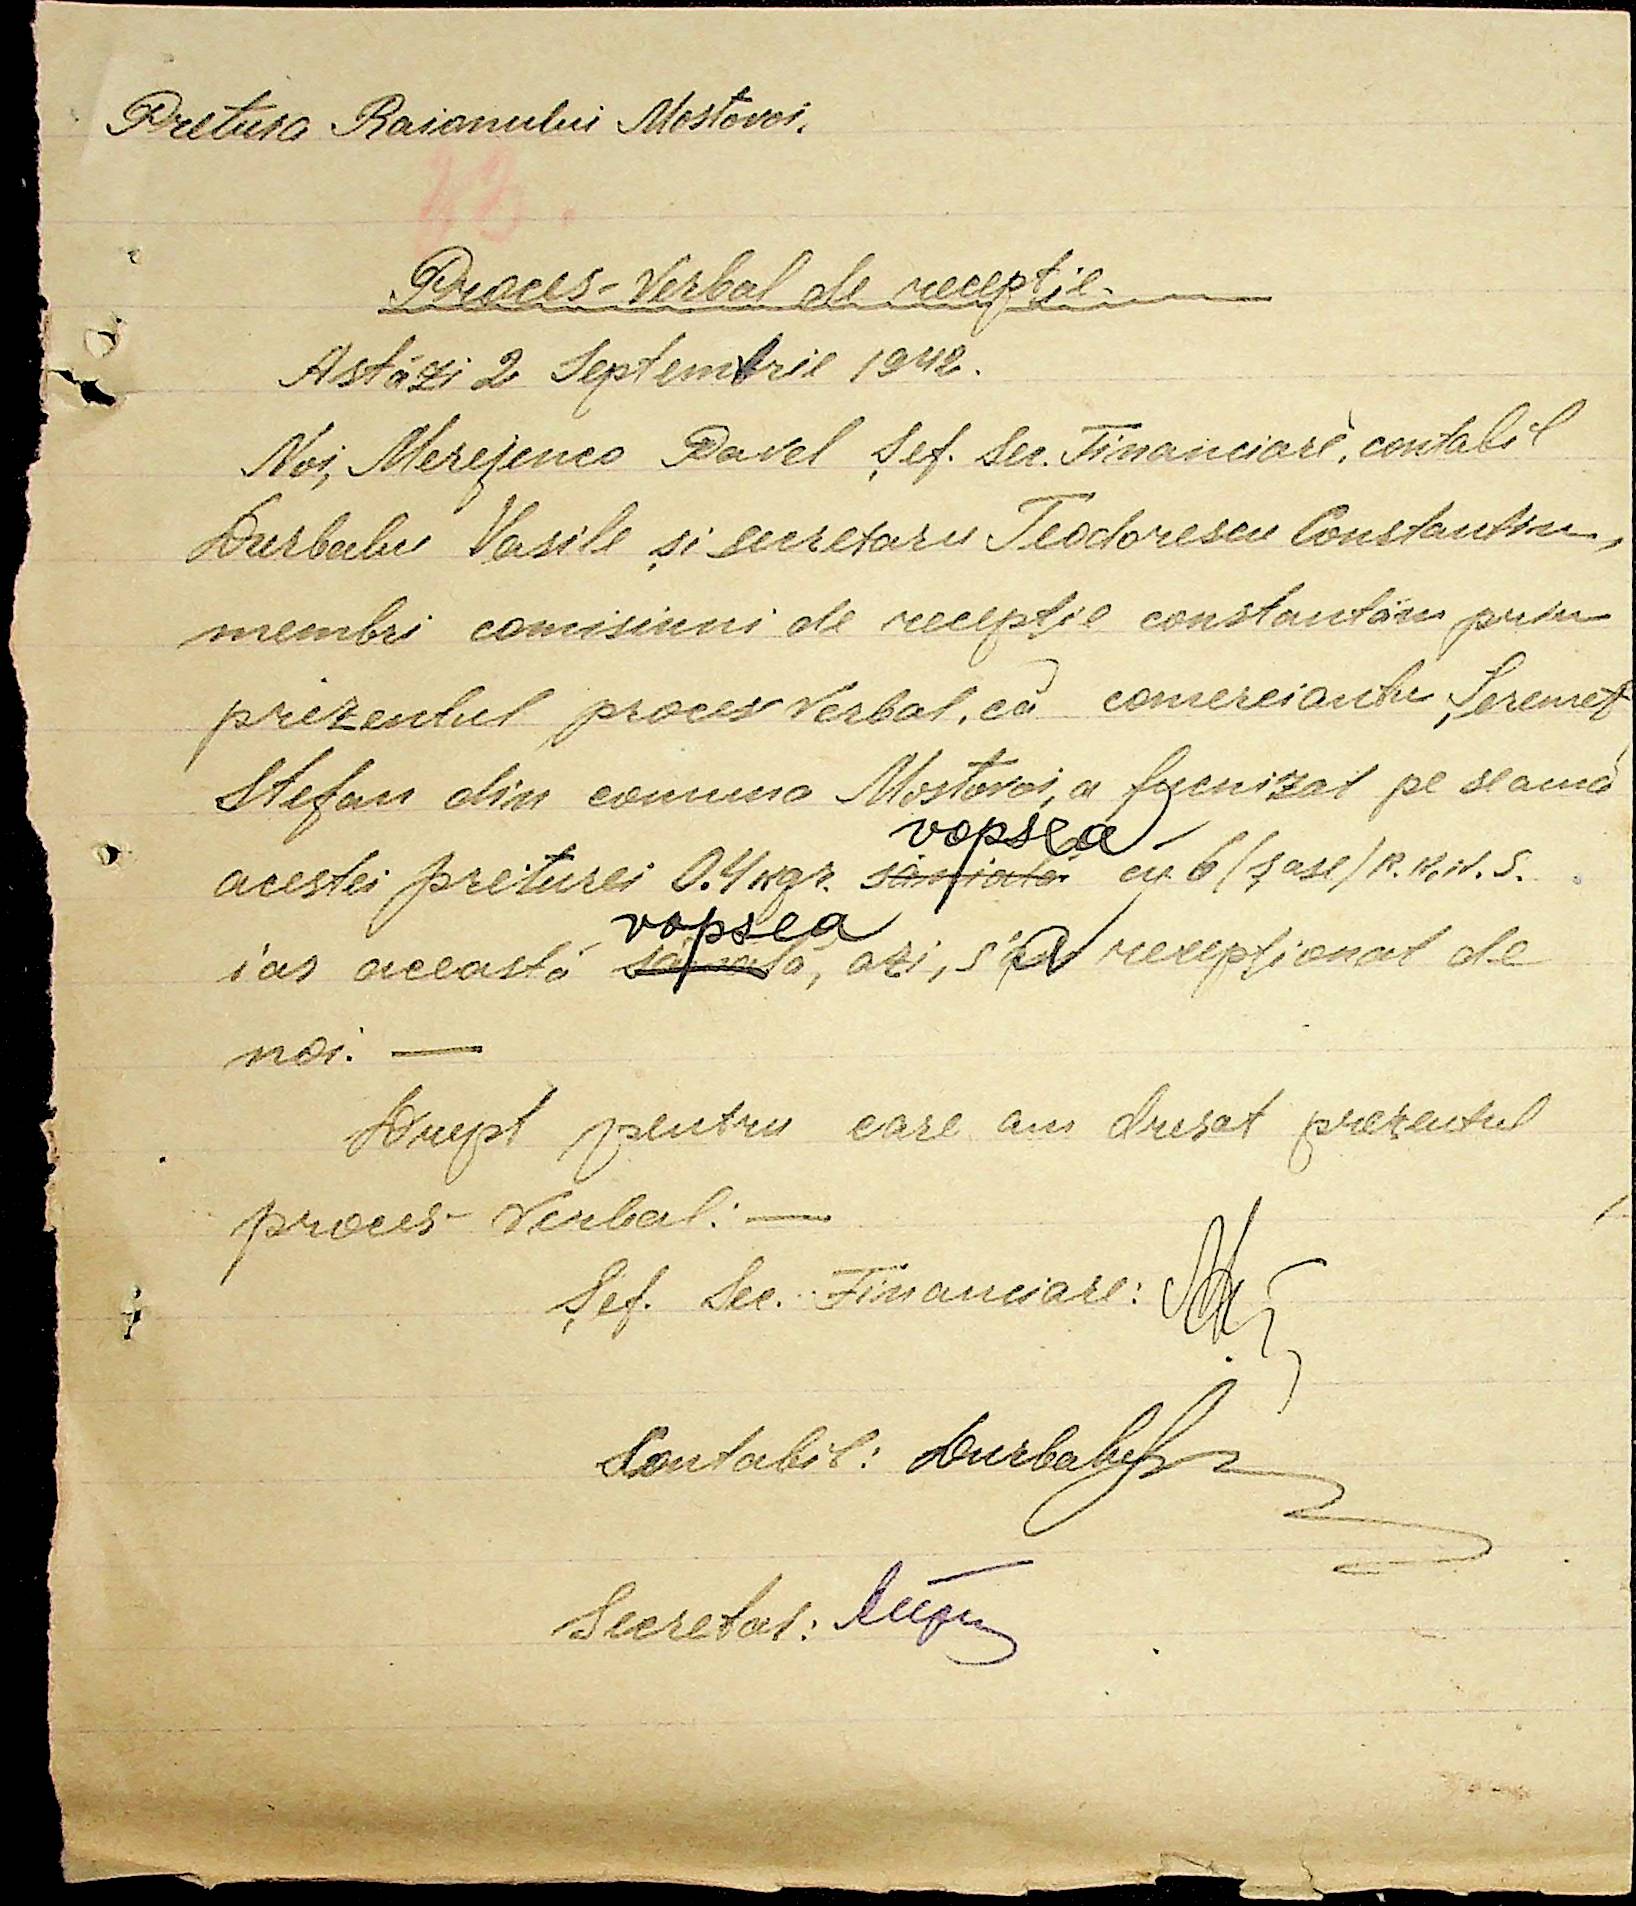 Pretura Raionului Mostovoi.
23.
Proces-Verbal de recepție.
Astăzi 2 Septembrie 1942.
Noi, Merejenco Pavel Șef. Sec. Financiare, contabil
Durbalu Vasile și secretaru Teodorescu Constantin,
membri comisiuni de recepție constantăm prin
prezentul proces Verbal, că comerciantu Șeremet
Stefan din comuna Mostovoi, a furnizat pe seama
vopsea
acestei preturei 0.4 kgr. cu 6 (șase) R.K.K.S.
vopsea
iar această azi, s'a recepționat de
noi. —
Drept pentru care am dresat prezentul
proces-Verbal: —
Șef. Sec. Financiare:
Contabil: Durbalu
Secretar: